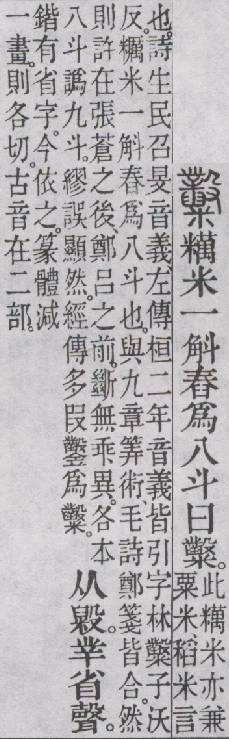 糳糲米一斛舂爲八斗曰糳。
此糲米亦兼
粟米稻米言
也。詩生民召旻音義、左傳桓二年音義皆引字林糳子沃
反、糲米一斛舂爲八斗也。與九章筭術、毛詩鄭箋皆合。然
則許在張蒼之後、鄭呂之前、斷無乖異。各本
八斗譌九斗。繆誤顯然。經傳多叚鑿爲糳。
从毇。丵省聲。
鍇有省字。今依之。篆體減
一畫。則各切。古音在二部。